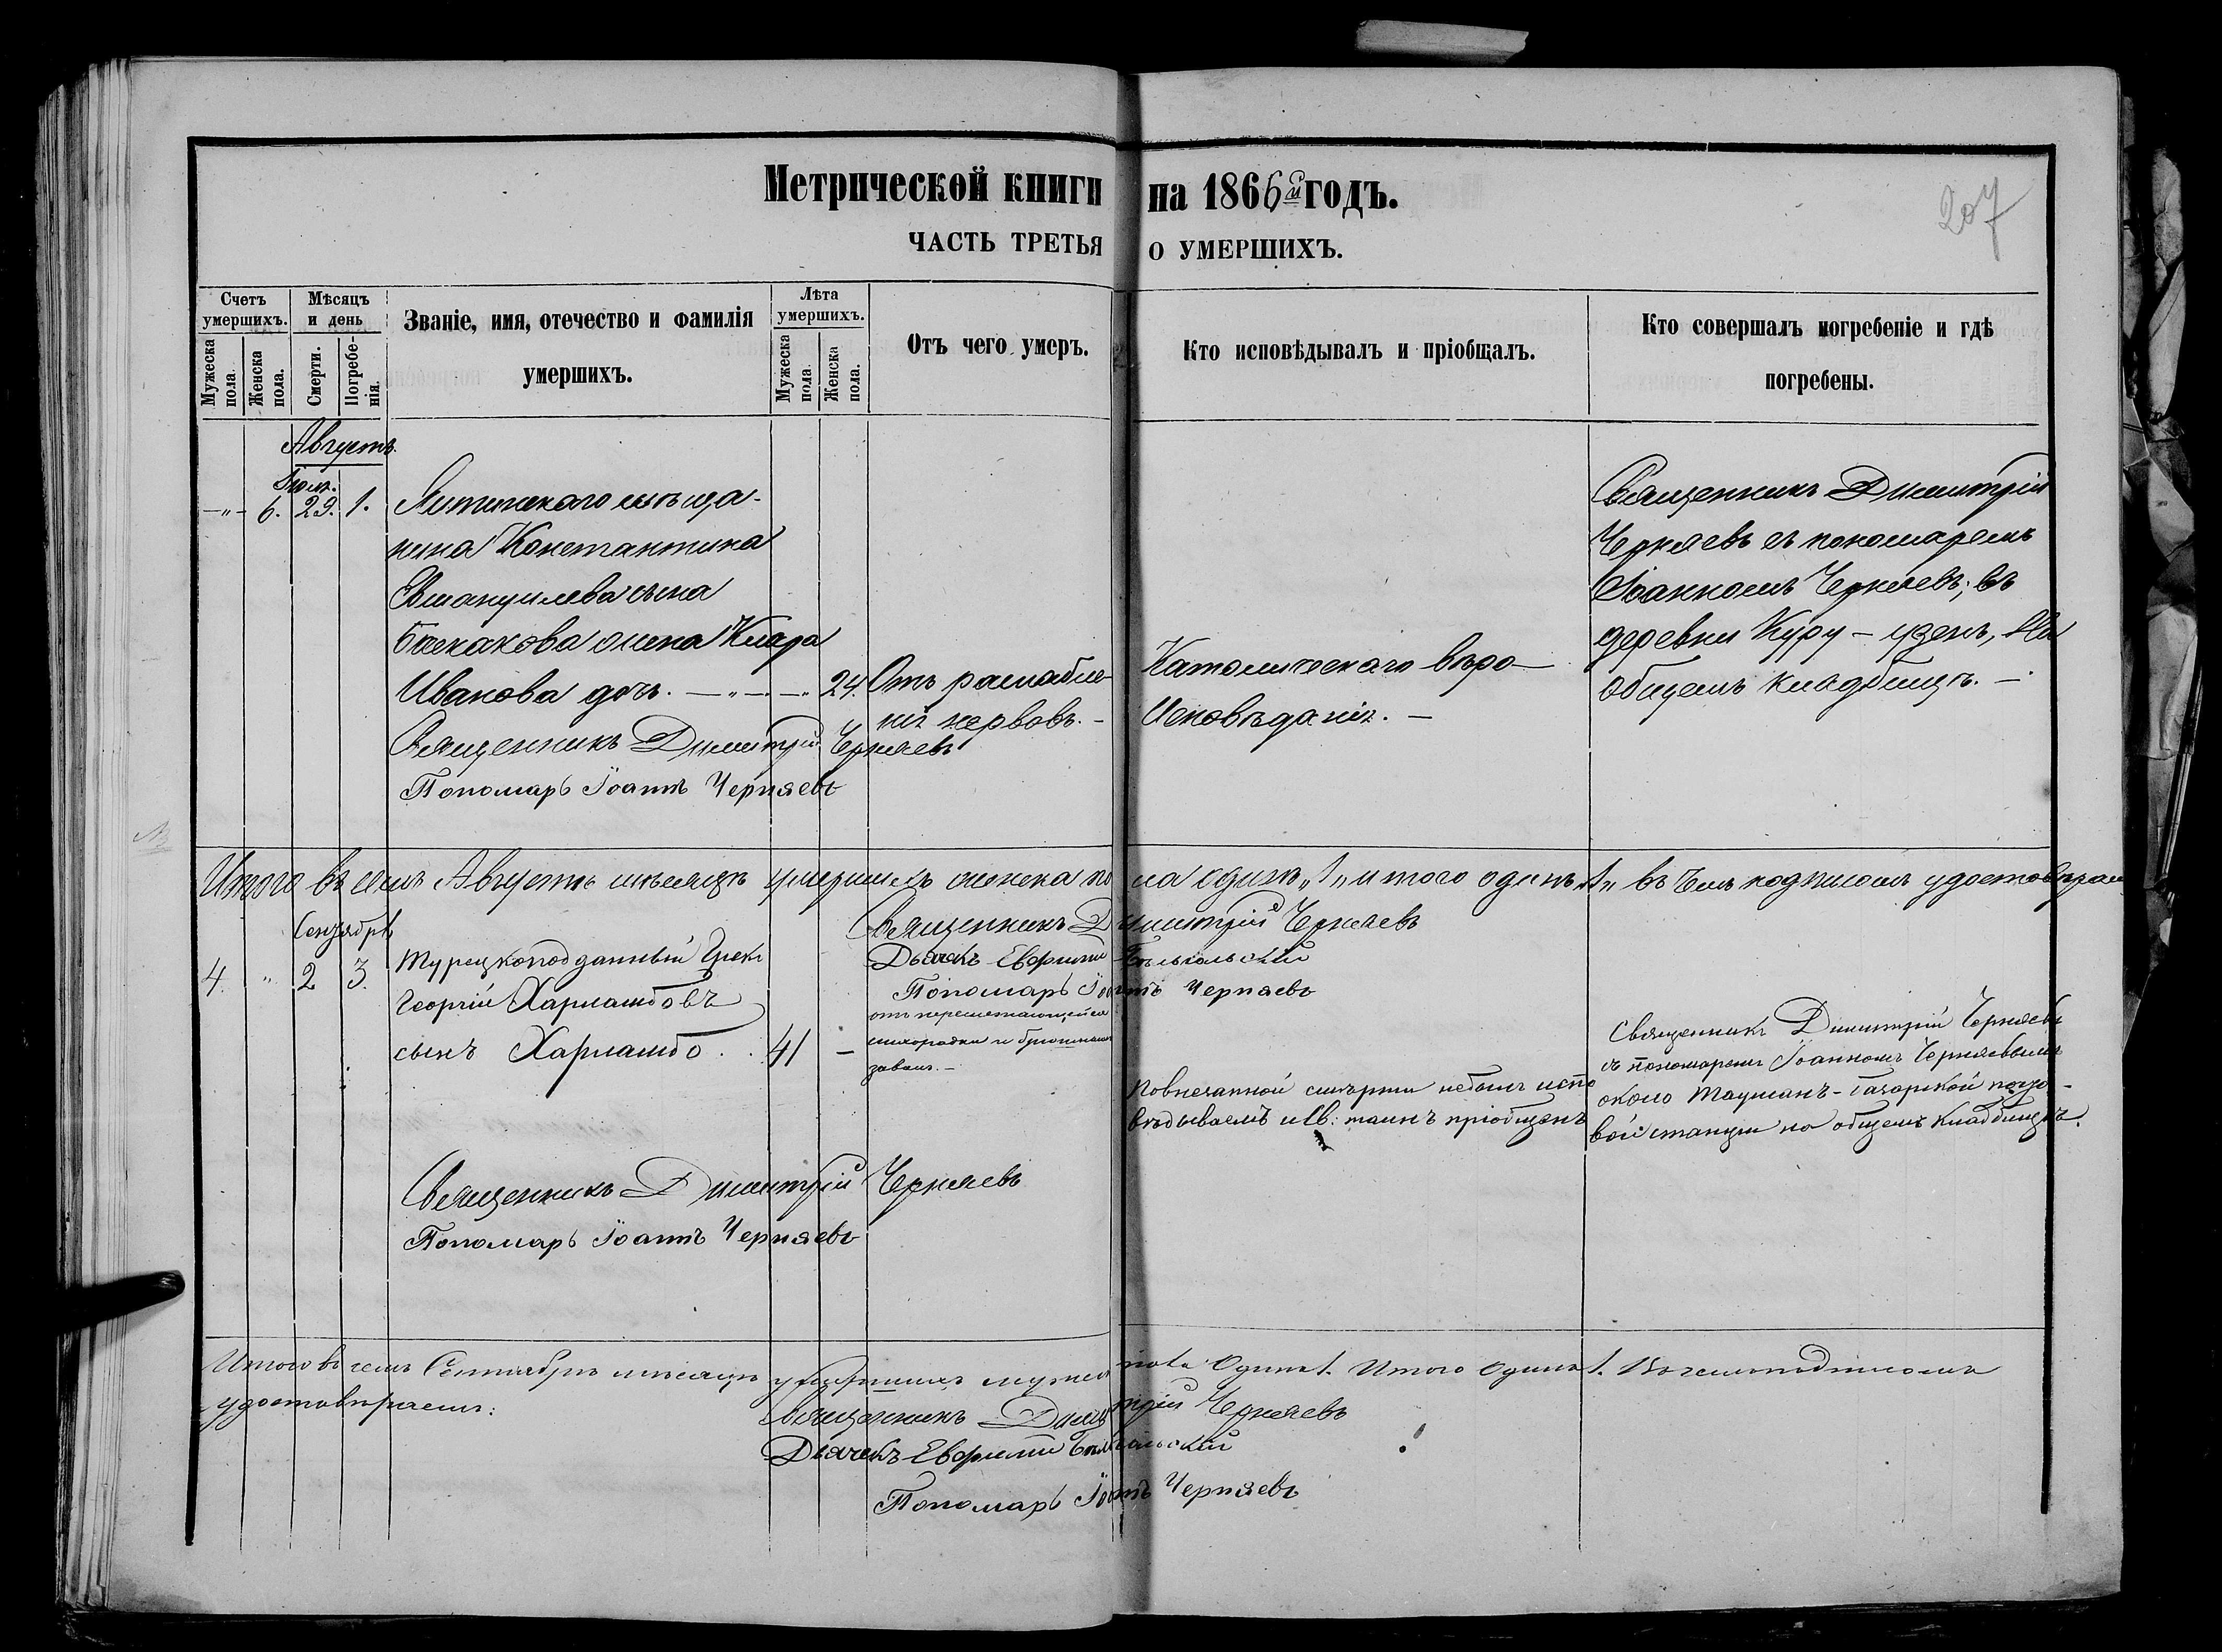 Метрической книги на 1866й годъ.
207
ЧАСТЬ ТРЕТЬЯ О УМЕРШИХЪ.
Счетъ умершихъ.
Мужеска пола.
Женска пола.
Мѣсяцъ и день
Смерти.
Погребенія.
Званіе, имя, отечество и фамилія
умершихъ.
Лѣта умершихъ.
Мужеска пола.
Женска пола.
Отъ чего умеръ.
Кто исповѣдывалъ и пріобщалъ.
Кто совершалъ погребеніе и гдѣ
погребены.
Августъ.
Іюля.
-"- 6. 29. 1.
мѣща-
нина Константина
Емануилева сына
жена Клара
Ивакова дочь. — " — — " 24.
Отъ разслабле-
нія нервовъ. -
Католическаго вѣро-
Исповѣданія. —
Священникъ Димитрій
Черняевъ съ пономаремъ
Іоанномъ Черняевъ; въ
деревни Куру - узень, На
Общемъ кладбищѣ. —
Священникъ Димитрій Черняевъ
Пономарь Іоаннъ Черняевъ
Итого въ семъ Августѣ мѣсяцѣ умершихъ женска пола одинъ „1„ итого одинъ „1„ въ чемъ подписомъ удостовѣряем
Священникъ Димитрій Черняевъ
Дьячекъ Евфимій
Пономарь Іоаннъ Черняевъ
Сентябрь
4. " 2 3.
Турецкоподданный Грекъ
Георгій Харламбовъ
сынъ Харламбо . . 41 —
отъ перемежающейся
лихорадки и брюшныхъ
завал. —
По внезапной смерти небылъ испо
вѣдываемъ и Св: таинъ пріобщенъ
Священникъ Димитрій Черняевъ
съ пономаремъ Іоанномъ Черняевымъ
около Таушанъ-Базарской почто-
вой станціи на общемъ кладбищѣ.
Священникъ Димитрій Черняевъ
Пономарь Іоаннъ Черняевъ
Итого въ семъ Сентябрѣ мѣсяцѣ умершихъ мужеска пола Одинъ 1. Итого Одинъ 1. Въ чемъ подписомъ
удостовѣряемъ:
Священникъ Димитрій Черняевъ
Дьячекъ Евфимій
Пономарь Іоаннъ Черняевъ